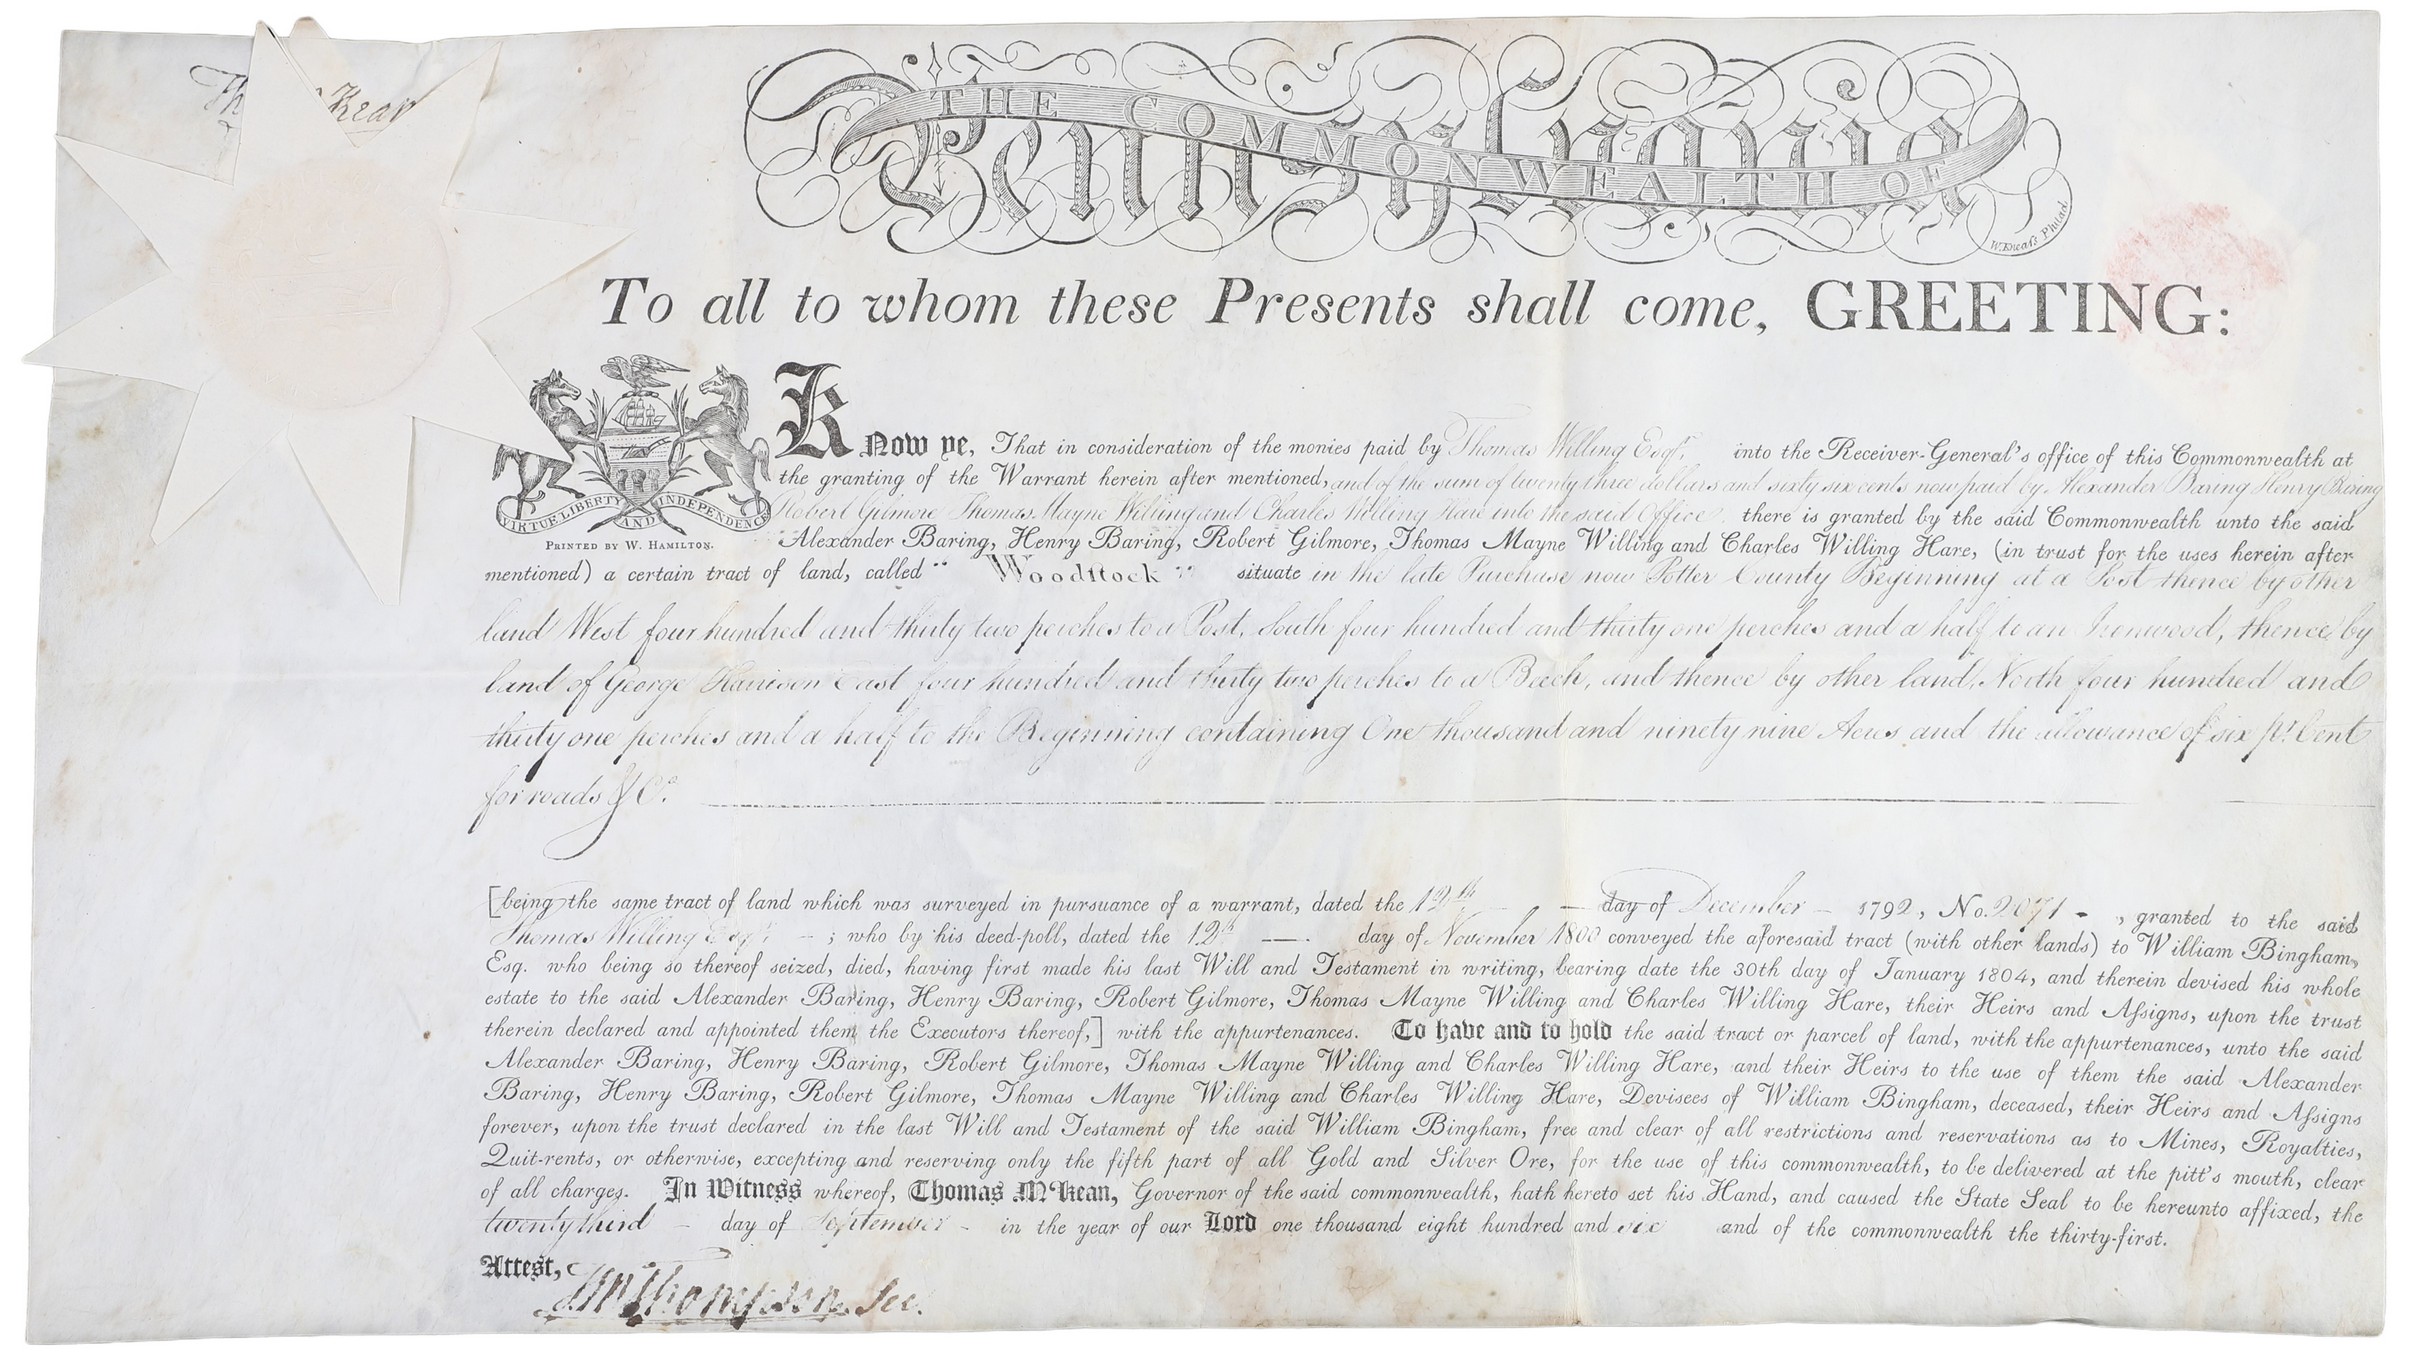 Kean
THE COMMONWEALTH OF
Pennsylvania
W. Kneass Philad.
To all to whom these Presents shall come, GREETING:
VIRTUE LIBERTY AND INDEPENDENCE
PRINTED BY W. HAMILTON.
KNOW ye, That in consideration of the monies paid by Thomas Willing Esqr. into the Receiver-General's office of this Commonwealth at
the granting of the Warrant herein after mentioned, and of the sum of twenty three dollars and sixty six cents now paid by Alexander Baring Henry Baring
Robert Gilmore Thomas Mayne Willing and Charles Willing Hare into the said Office there is granted by the said Commonwealth unto the said
Alexander Baring, Henry Baring, Robert Gilmore, Thomas Mayne Willing and Charles Willing Hare, (in trust for the uses herein after
mentioned) a certain tract of land, called " Woodſtock " situate in the late Purchase now Potter County Beginning at a Post thence by other
land West four hundred and thirty two perches to a Post, South four hundred and thirty one perches and a half to an Ironwood, thence by
land of George Harrison East four hundred and thirty two perches to a Beech, and thence by other land, North four hundred and
thirty one perches and a half to the Beginning containing One thousand and ninety nine Acres and the allowance of six pr. Cent
for roads & Ca.
[being the same tract of land which was surveyed in pursuance of a warrant, dated the 12th day of December 1792, No. 2071, granted to the said
Thomas Willing Esqr. ; who by his deed-poll, dated the 12th day of November 1800 conveyed the aforesaid tract (with other lands) to William Bingham,
Esq. who being so thereof seized, died, having first made his last Will and Testament in writing, bearing date the 30th day of January 1804, and therein devised his whole
estate to the said Alexander Baring, Henry Baring, Robert Gilmore, Thomas Mayne Willing and Charles Willing Hare, their Heirs and Aſsigns, upon the trust
therein declared and appointed them the Executors thereof,] with the appurtenances. To have and to hold the said tract or parcel of land, with the appurtenances, unto the said
Alexander Baring, Henry Baring, Robert Gilmore, Thomas Mayne Willing and Charles Willing Hare, and their Heirs to the use of them the said Alexander
Baring, Henry Baring, Robert Gilmore, Thomas Mayne Willing and Charles Willing Hare, Devisees of William Bingham, deceased, their Heirs and Aſsigns
forever, upon the trust declared in the last Will and Testament of the said William Bingham, free and clear of all restrictions and reservations as to Mines, Royalties,
Quit-rents, or otherwise, excepting and reserving only the fifth part of all Gold and Silver Ore, for the use of this commonwealth, to be delivered at the pitt's mouth, clear
of all charges. In Witness whereof, Thomas M'Kean, Governor of the said commonwealth, hath hereto set his Hand, and caused the State Seal to be hereunto affixed, the
twenty third day of September in the year of our Lord one thousand eight hundred and six and of the commonwealth the thirty-first.
Attest,
Thompson Sec.